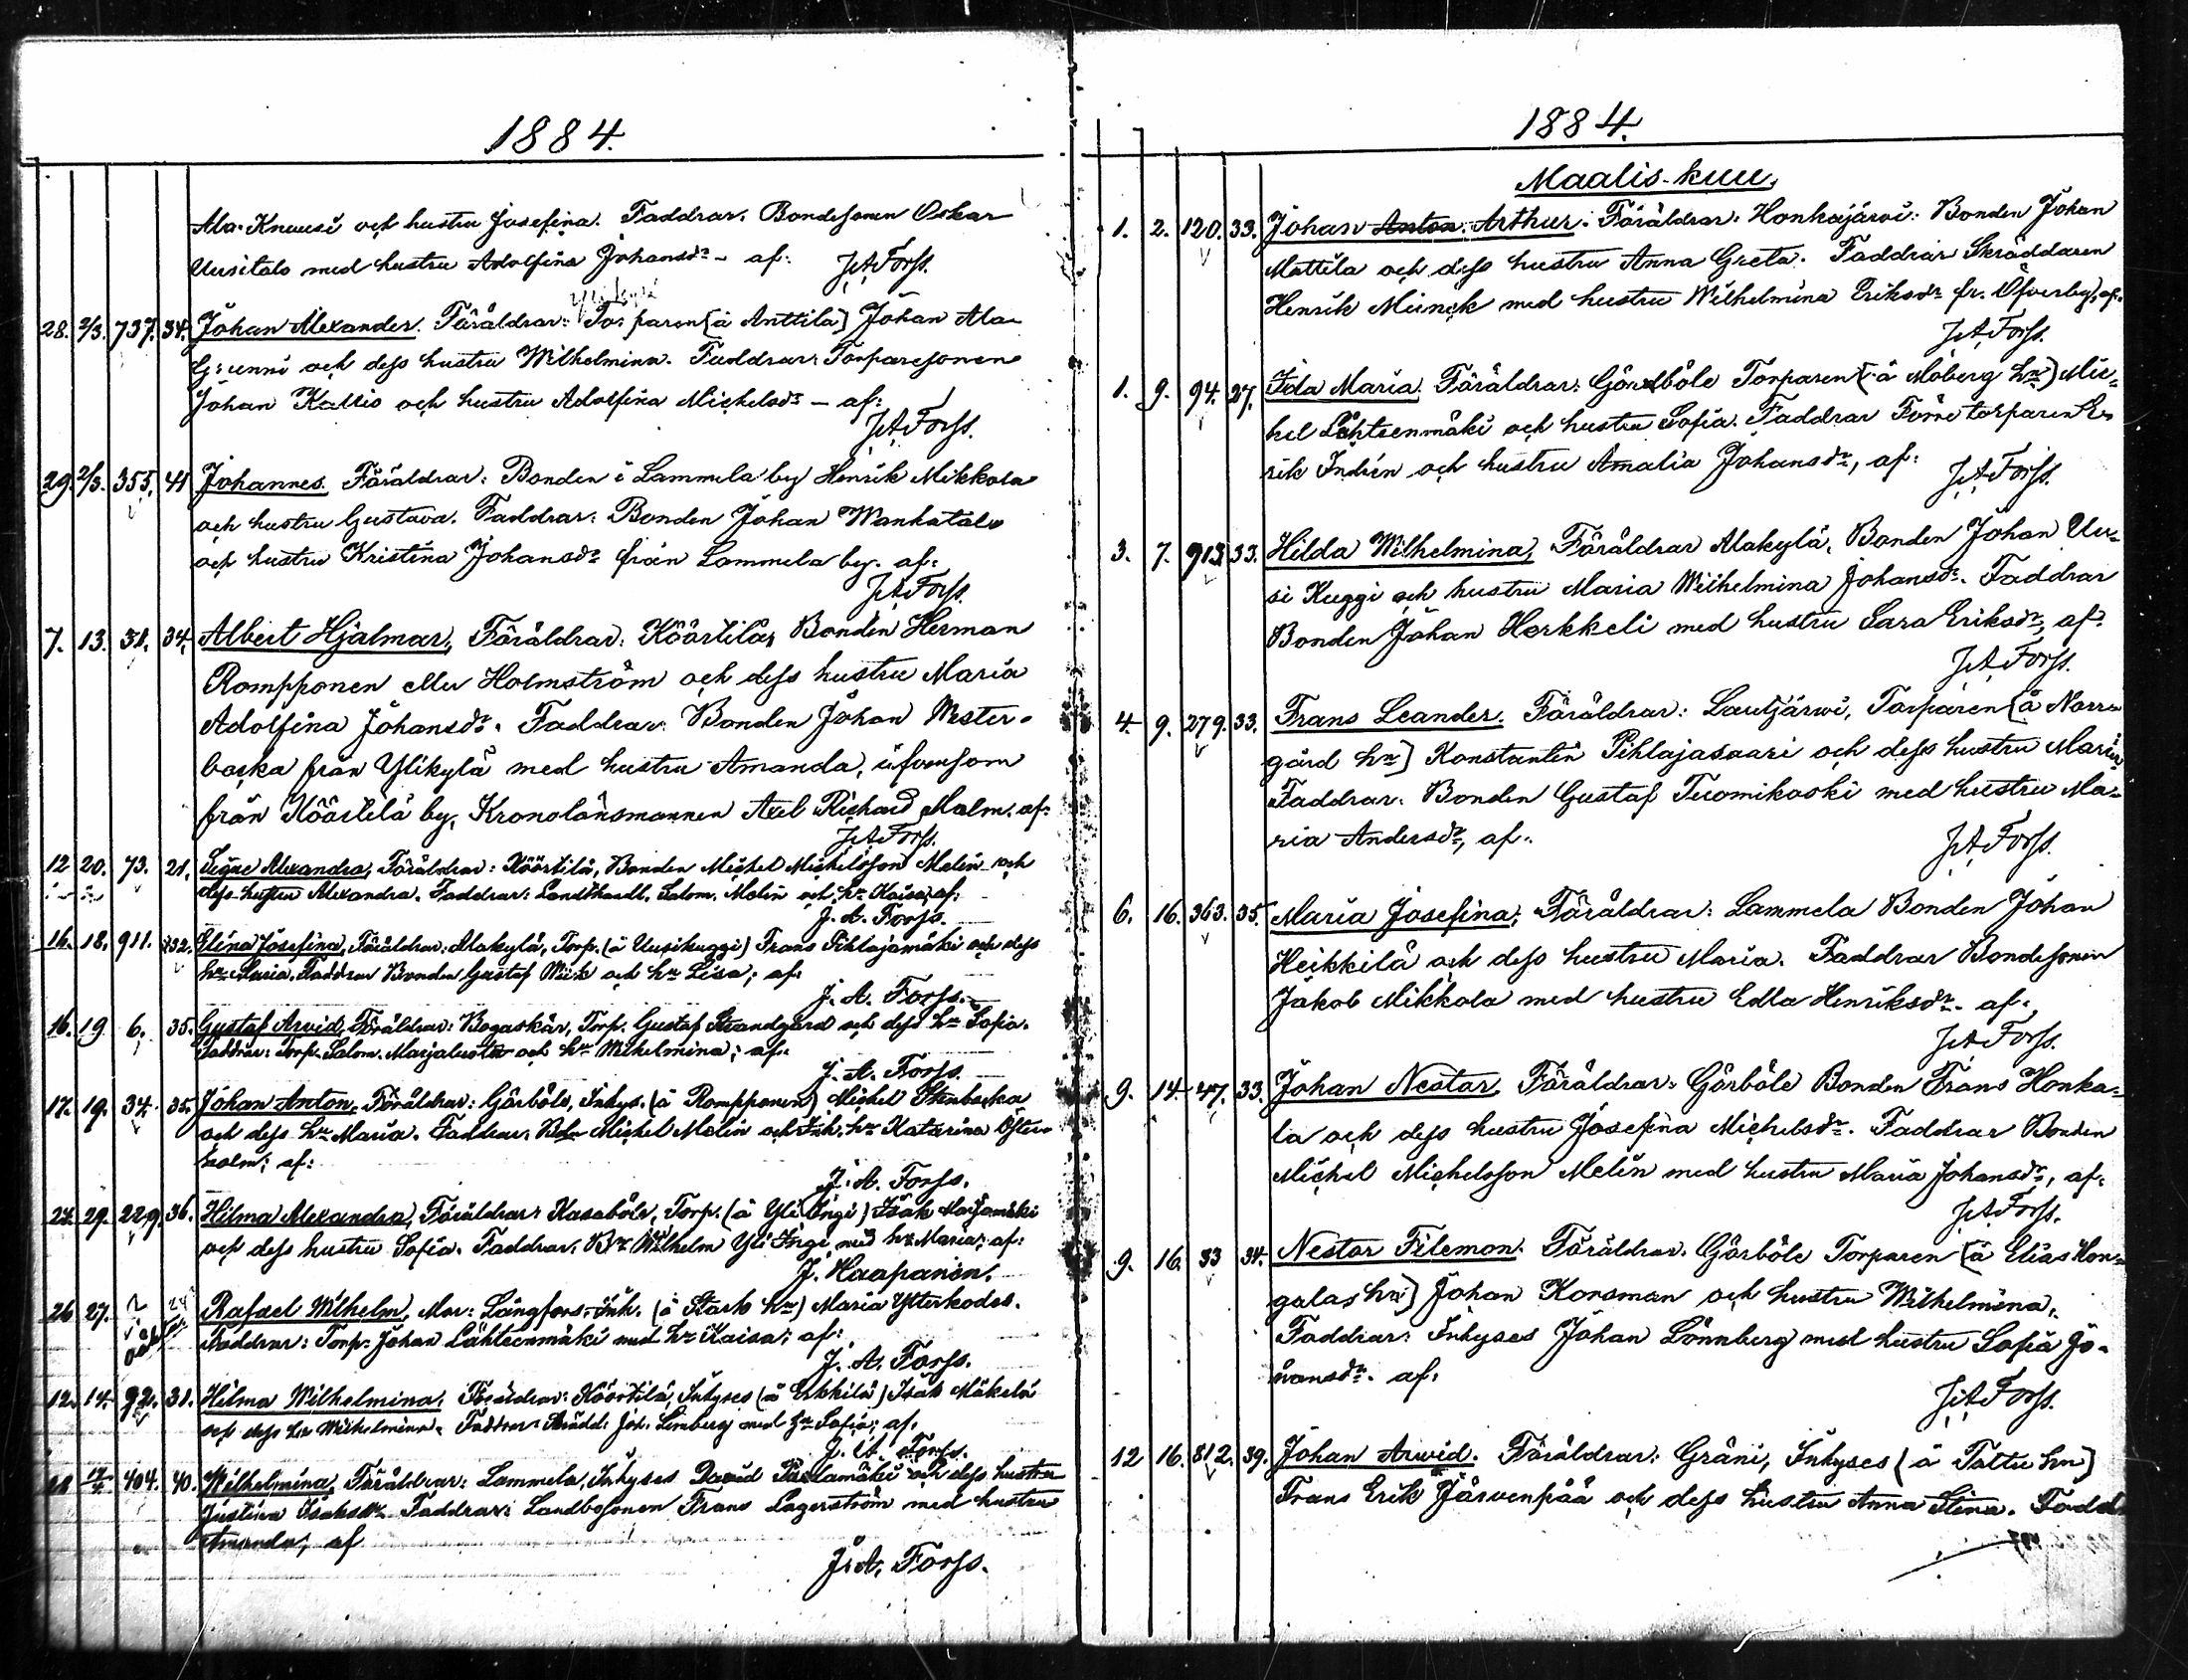 1884.
Ala-Knuusi och hustru Josefina. Faddrar. Bondesonen Oskar
Uusitalo med hustru Adolfina Johansdr - af: J.A.Forss.
28. 2/3. 737. 34. Johan Alexander. Föräldrar: Torparen (å Anttila) Johan Ala-
och dess hustru Wilhelmina. Faddrar: Torparesonen
Johan Kallio och hustru Adolfina Michelsdr - af:
J.A.Forss.
29. 2/3. 355. 41 Johannes. Föräldrar: Bonden i Lammela by Henrik Mikkola
och hustru Gustava. Faddrar: Bonden Johan Wankatalo
och hustru Kristina Johansdr från Lammela by. af:
J.A.Forss.
7. 13. 31. 34. Albert Hjalmar, Föräldrar: Köörtilä, Bonden Herman
Rompponen eller Holmström och dess hustru Maria
Adolfina Johansdr. Faddrar: Bonden Johan Wester-
backa från Ylikylä med hustru Amanda, äfvensom
från Köörtilä by, Kronolänsmannen Axel Richard Malm. af:
J.A.Forss.
12 20. 73. 21. Signe Alexandra, Föräldrar: Köörtilä, Bonden Michel Michelsson Melin och
dess hustru Alexandra. Faddrar: Landthandl. Salom. Melin och hr Kaisa, af:
J. A. Forss.
16. 18. 911. 32. Elina Josefina, Föräldrar: Alakylä, Torp. (å Uusikuggi) Frans Pihlajamäki och dess
hu Maria. Faddrar Bonden Gustaf Wiik och hu Lisa; af:
J. A. Forss.
16. 19 6. 35. Gustaf Arvid, Föräldrar: Bogaskär, Torp. Gustaf Strandgård och dess hu Sofia.
Faddrar: Torp. Salom. Marjaluoto och hu Wilhelmina; af:
J. A. Forss.
17. 19. 34. 35. Johan Anton, Föräldrar: Gårböle, Inhys. (å Rompponen) Michel Stenbacka
och dess hu Maria. Faddrar: Bdn Michel Melin och Inh. hu Katarina Öster-
holm; af:
J. A. Forss.
24. 29. 229 36. Hilma Alexandra, Föräldrar: Kasaböle, Torp. (å Yli Ingi) Isak
och dess hustru Sofia. Faddrar: Bn Wilhelm Yli-Ingi med hu Maria; af:
J. Haapanen.
26 27. Rafael Wilhelm, Mor: Långfors, Inh. (å Starks hn) Maria Ytterkodes.
Faddrar: Torp. Johan Lähteenmäki med hu Kaisa; af:
J. A. Forss.
12. 14. 92. 31. Hilma Wilhelmina, Föräldrar: Köörtilä, Inhyses (å Erkkilä) Isak Mäkelä
och dess hu Wilhelmina. Faddrar: Skrädd. Joh. Lemberg med hu Sofia; af.
J. A. Forss.
404. 40. Wilhelmina, Föräldrar: Lammela, Inhyses David och dess hustru
Justina Isaksdr. Faddrar: Landbosonen Frans Lagerström med hustru
Amanda; af
J. A. Forss.
1884.
Maalis-kuu,
1. 2. 120. 33. Johan Anton. Arthur. Föräldrar: Honkajärvi: Bonden Johan
Mattila och dess hustru Anna Greta. Faddrar Skräddaren
Henrik Munck med hustru Wilhelmina Eriksdr fr. Öfverby, af.
J.A.Forss.
1. 9. 94. 27. Ida Maria. Föräldrar: Torparen (å Moberg hn) Mic-
hel Lähteenmäki och hustru Sofia. Faddrar Förre torparen E-
rik Indrén och hustru Amalia Johansdr, af:
J.A.Forss.
3. 7. 913 33. Hilda Wilhelmina, Föräldrar Alakylä, Bonden Johan Uu-
si Kuggi och hustru Maria Wilhelmina Johansdr. Faddrar
Bonden Johan Herkkeli med hustru Sara Eriksdr, af:
J.A.Forss.
4. 9. 279. 33. Frans Leander. Föräldrar: Lautjärwi, Torparen (å Norr-
gård hn) Konstantin Pihlajasaari och dess hustru Maria
Faddrar: Bonden Gustaf Tuomikoski med hustru Ma-
ria Andersdr, af:
J.A.Forss.
6. 16. 363. 35. Maria Josefina, Föräldrar: Lammela Bonden Johan
Heikkilä och dess hustru Maria. Faddrar Bondesonen
Jakob Mikkola med hustru Edla Henriksdr. af:
J.A.Forss.
9. 14. 47. 33. Johan Nestor, Föräldrar: Gårböle Bonden Frans Honka-
la och dess hustru Josefina Michelsdr. Faddrar Bonden
Michel Michelsson Melin med hustru Maria Johansdr, af:
J.A.Forss.
9. 16. 33 34. Nestor Filemon. Föräldrar. Gårböle Torparen (å Elias Hon-
galas hn) Johan Korsman och hustru Wilhelmina.
Faddrar: Inhyses Johan Lönnberg med hustru Sofia Jo-
hansdr. af:
J.A.Forss.
12 16. 812. 39. Johan Arwid. Föräldrar: Gräni, Inhyses (å Tattu hn)
Frans Erik Järvenpää och dess hustru Anna Stina. Fadd